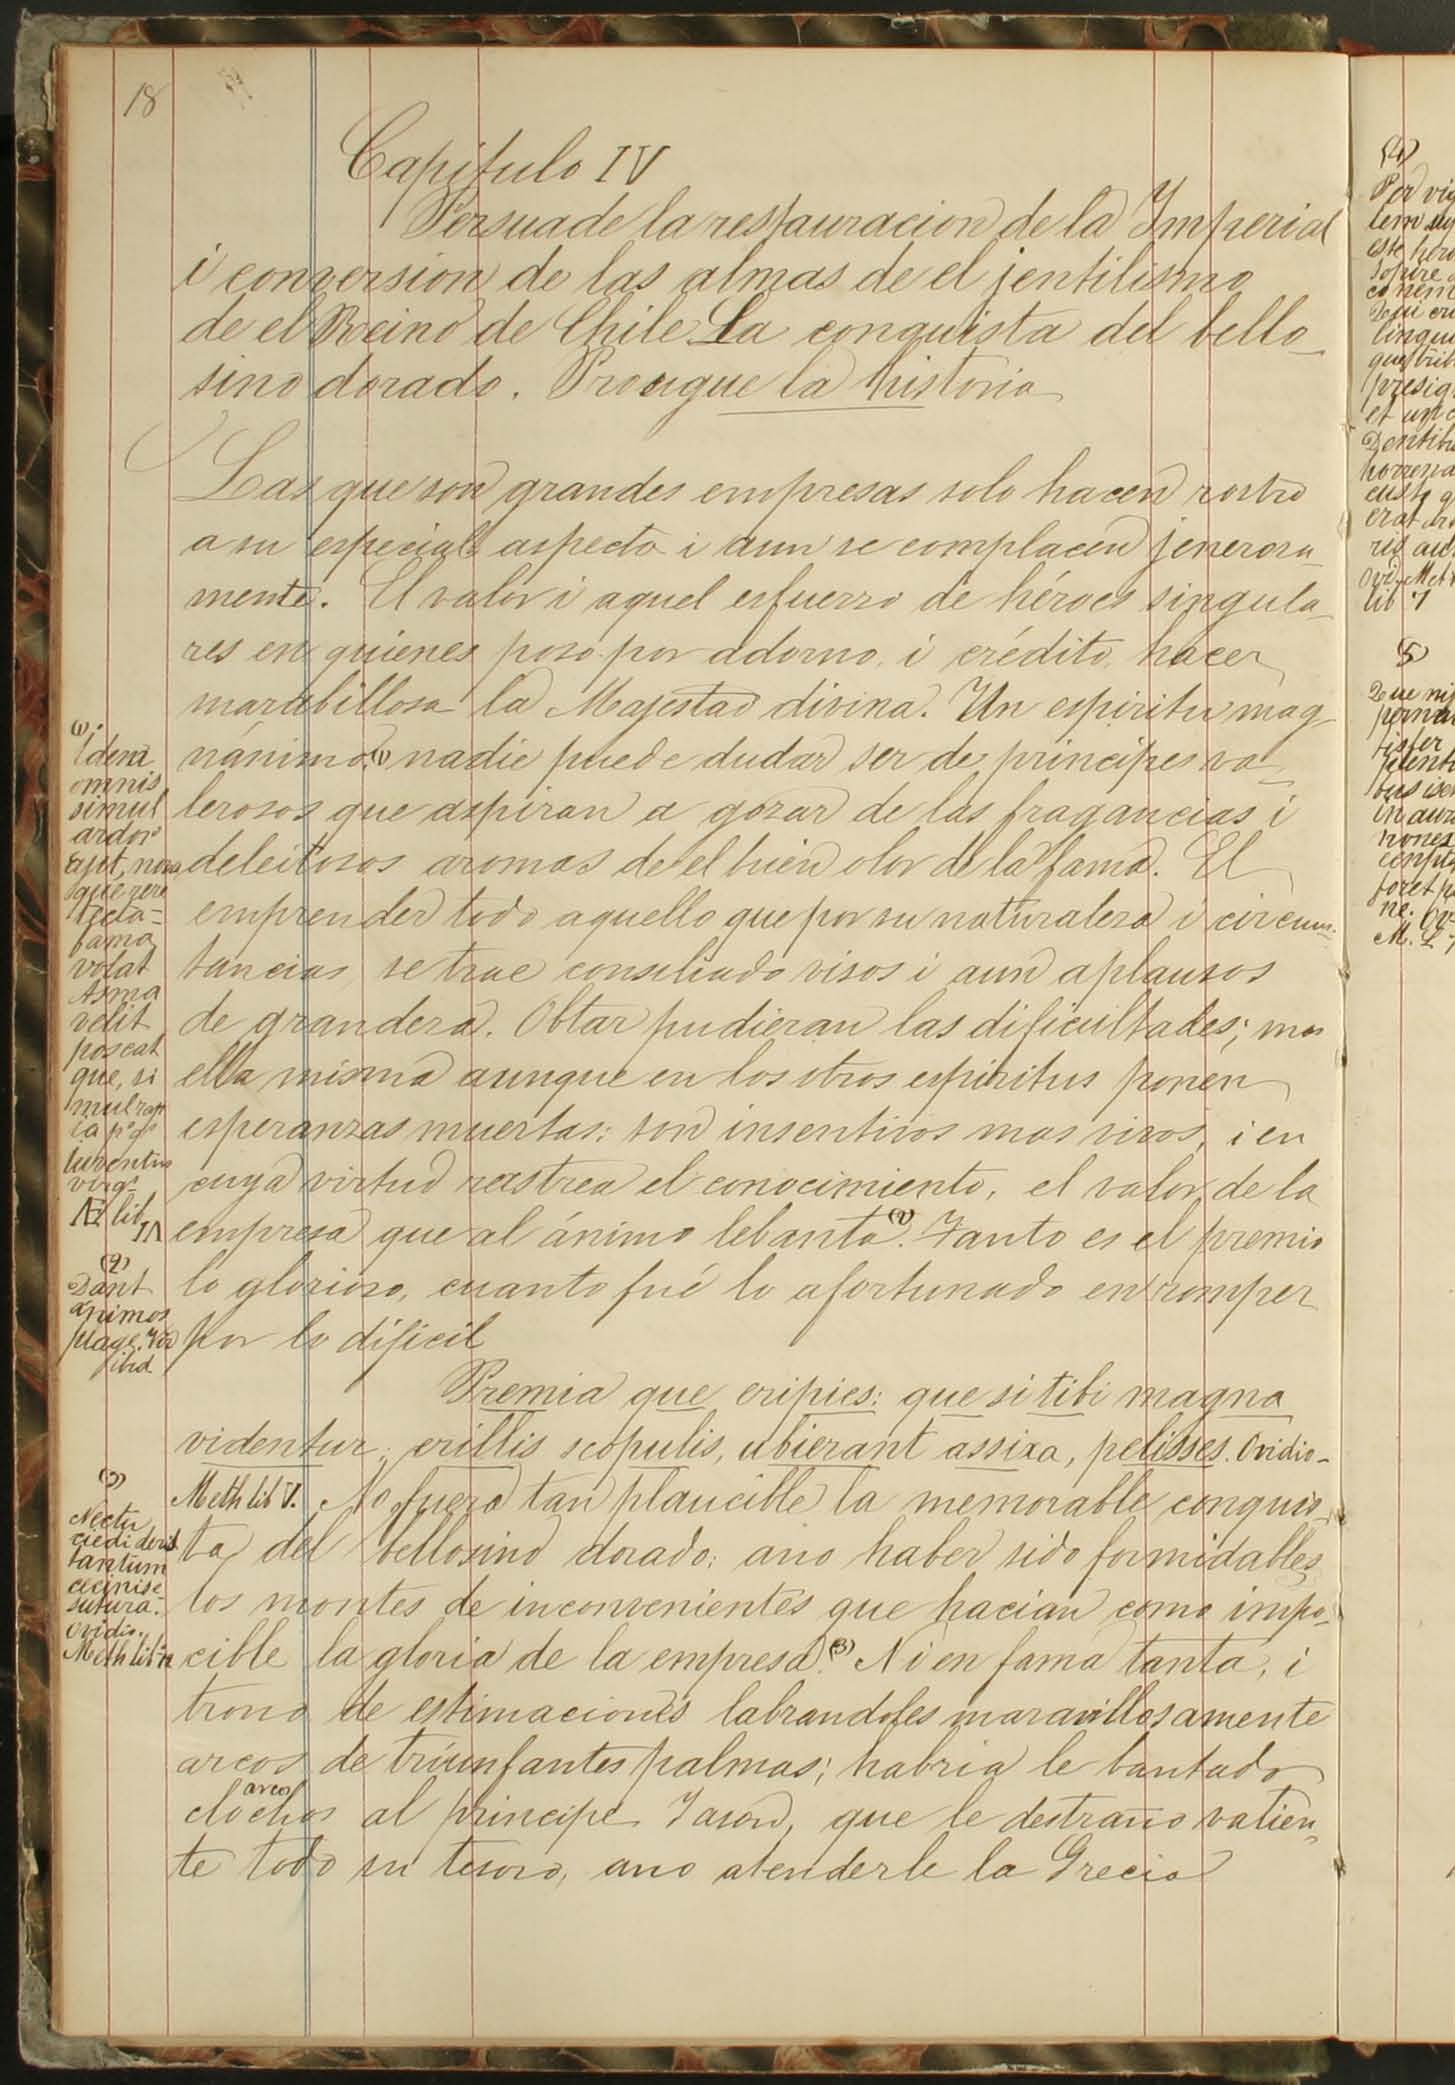 18
Capitulo IV
Persuade la restauracion de la Imperial
i conversion de las almas de el jentilismo
de el Reino de Chile La conquista del bello-
sino dorado. Prosigue la historia
Las que son grandes empresas solo hacen rostro
a su especial aspecto i aun se complacen jenerosa-
mente. El valor i aquel esfuerzo de héroes singula-
res en quienes poso por adorno i crédito hacer
marabillosa la Majestad divina. Un espiritu mag-
nánimo (1) nadie puede dudar ser de principes va-
lerosos que aspiran a gozar de las fragancias i
deleitosos aromas de el buen olor de la fama. El
emprender todo aquello que por su naturaleza i circuns-
tancias se trae consiliado visos i aun aplausos
de grandeza. Obtar pudieran las dificultades; mas
ella misma aunque en los otros espiritus ponen
esperanzas muertas: son insentivos mas vivos, i en
cuya virtud rastrea el conocimiento, el valor de la
empresa que al ánimo lebanta (2). Tanto es el premio
lo glorioso, cuanto fué lo afortunado en romper
por lo dificil
Premia que eripies: que si tibi magna
videntur, erillis scopulis, ubierant assixa, pelisses. Ovidio-
Meth lib V. No fuera tan plaucible la memorable conquis-
ta del bellosino dorado: ano haber sido formidables
los montes de inconvenientes que hacian como impo-
cible la gloria de la empresa (3) Ni en fama tanta, i
trono de estimaciones labrandoles maravillosamente
arcos de triunfantes palmas; habria le bantado
arcos
al principe Jason, que le destrano valien-
te todo su tesoro, ano atenderle la Grecia
(1).
Idem
omnis
simul
ardor
nova
que
fama
volat
velit
poscat
que, si
mul
virg.
lib
(2)
Dant
animos
plage. Vir
ibid
(3)
tantum
cecinise
Ovidio.
Meth lib
(4)
(5)